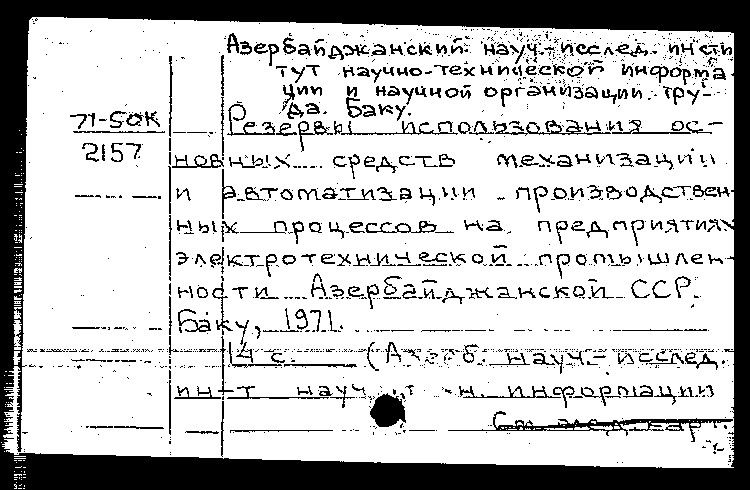 Азербайджанский науч.-исслед. инсти
тут научно-технической информа
ции и научной организации тру-
да. Баку.
71-50К
2157
Резервы использования ос-
новных средств механизации
и автоматизации производствен-
ных процессов на предприятиях
электротехнической промышлен-
ности Азербайджанской ССР.
Баку, 1971.
14 с. (Азерб. науч.-исслед.
ин-т науч. и информации
См. след. карт.